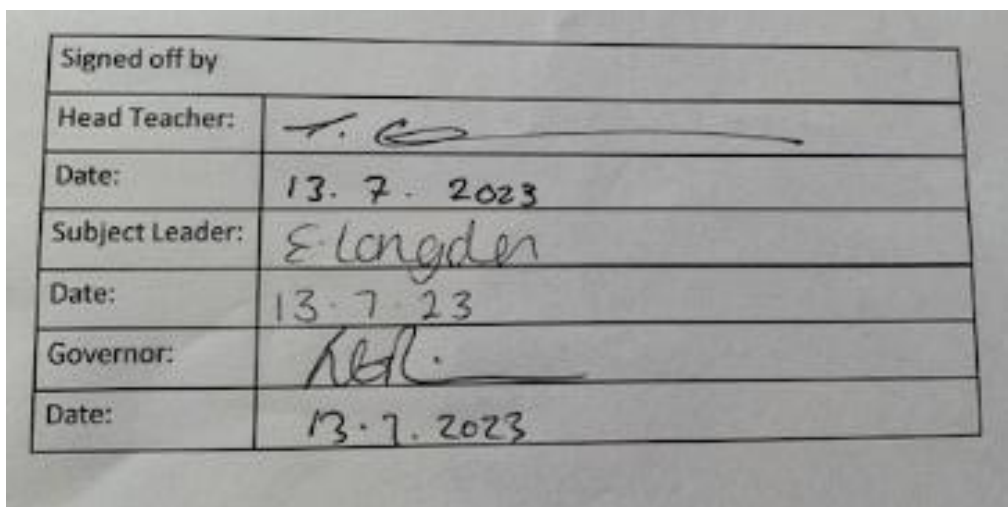 Signed off by
Head Teacher:
Date: 13. 7. 2023
Subject Leader: E. Longden
Date: 13.7.23
Governor:
Date: 13.7.2023